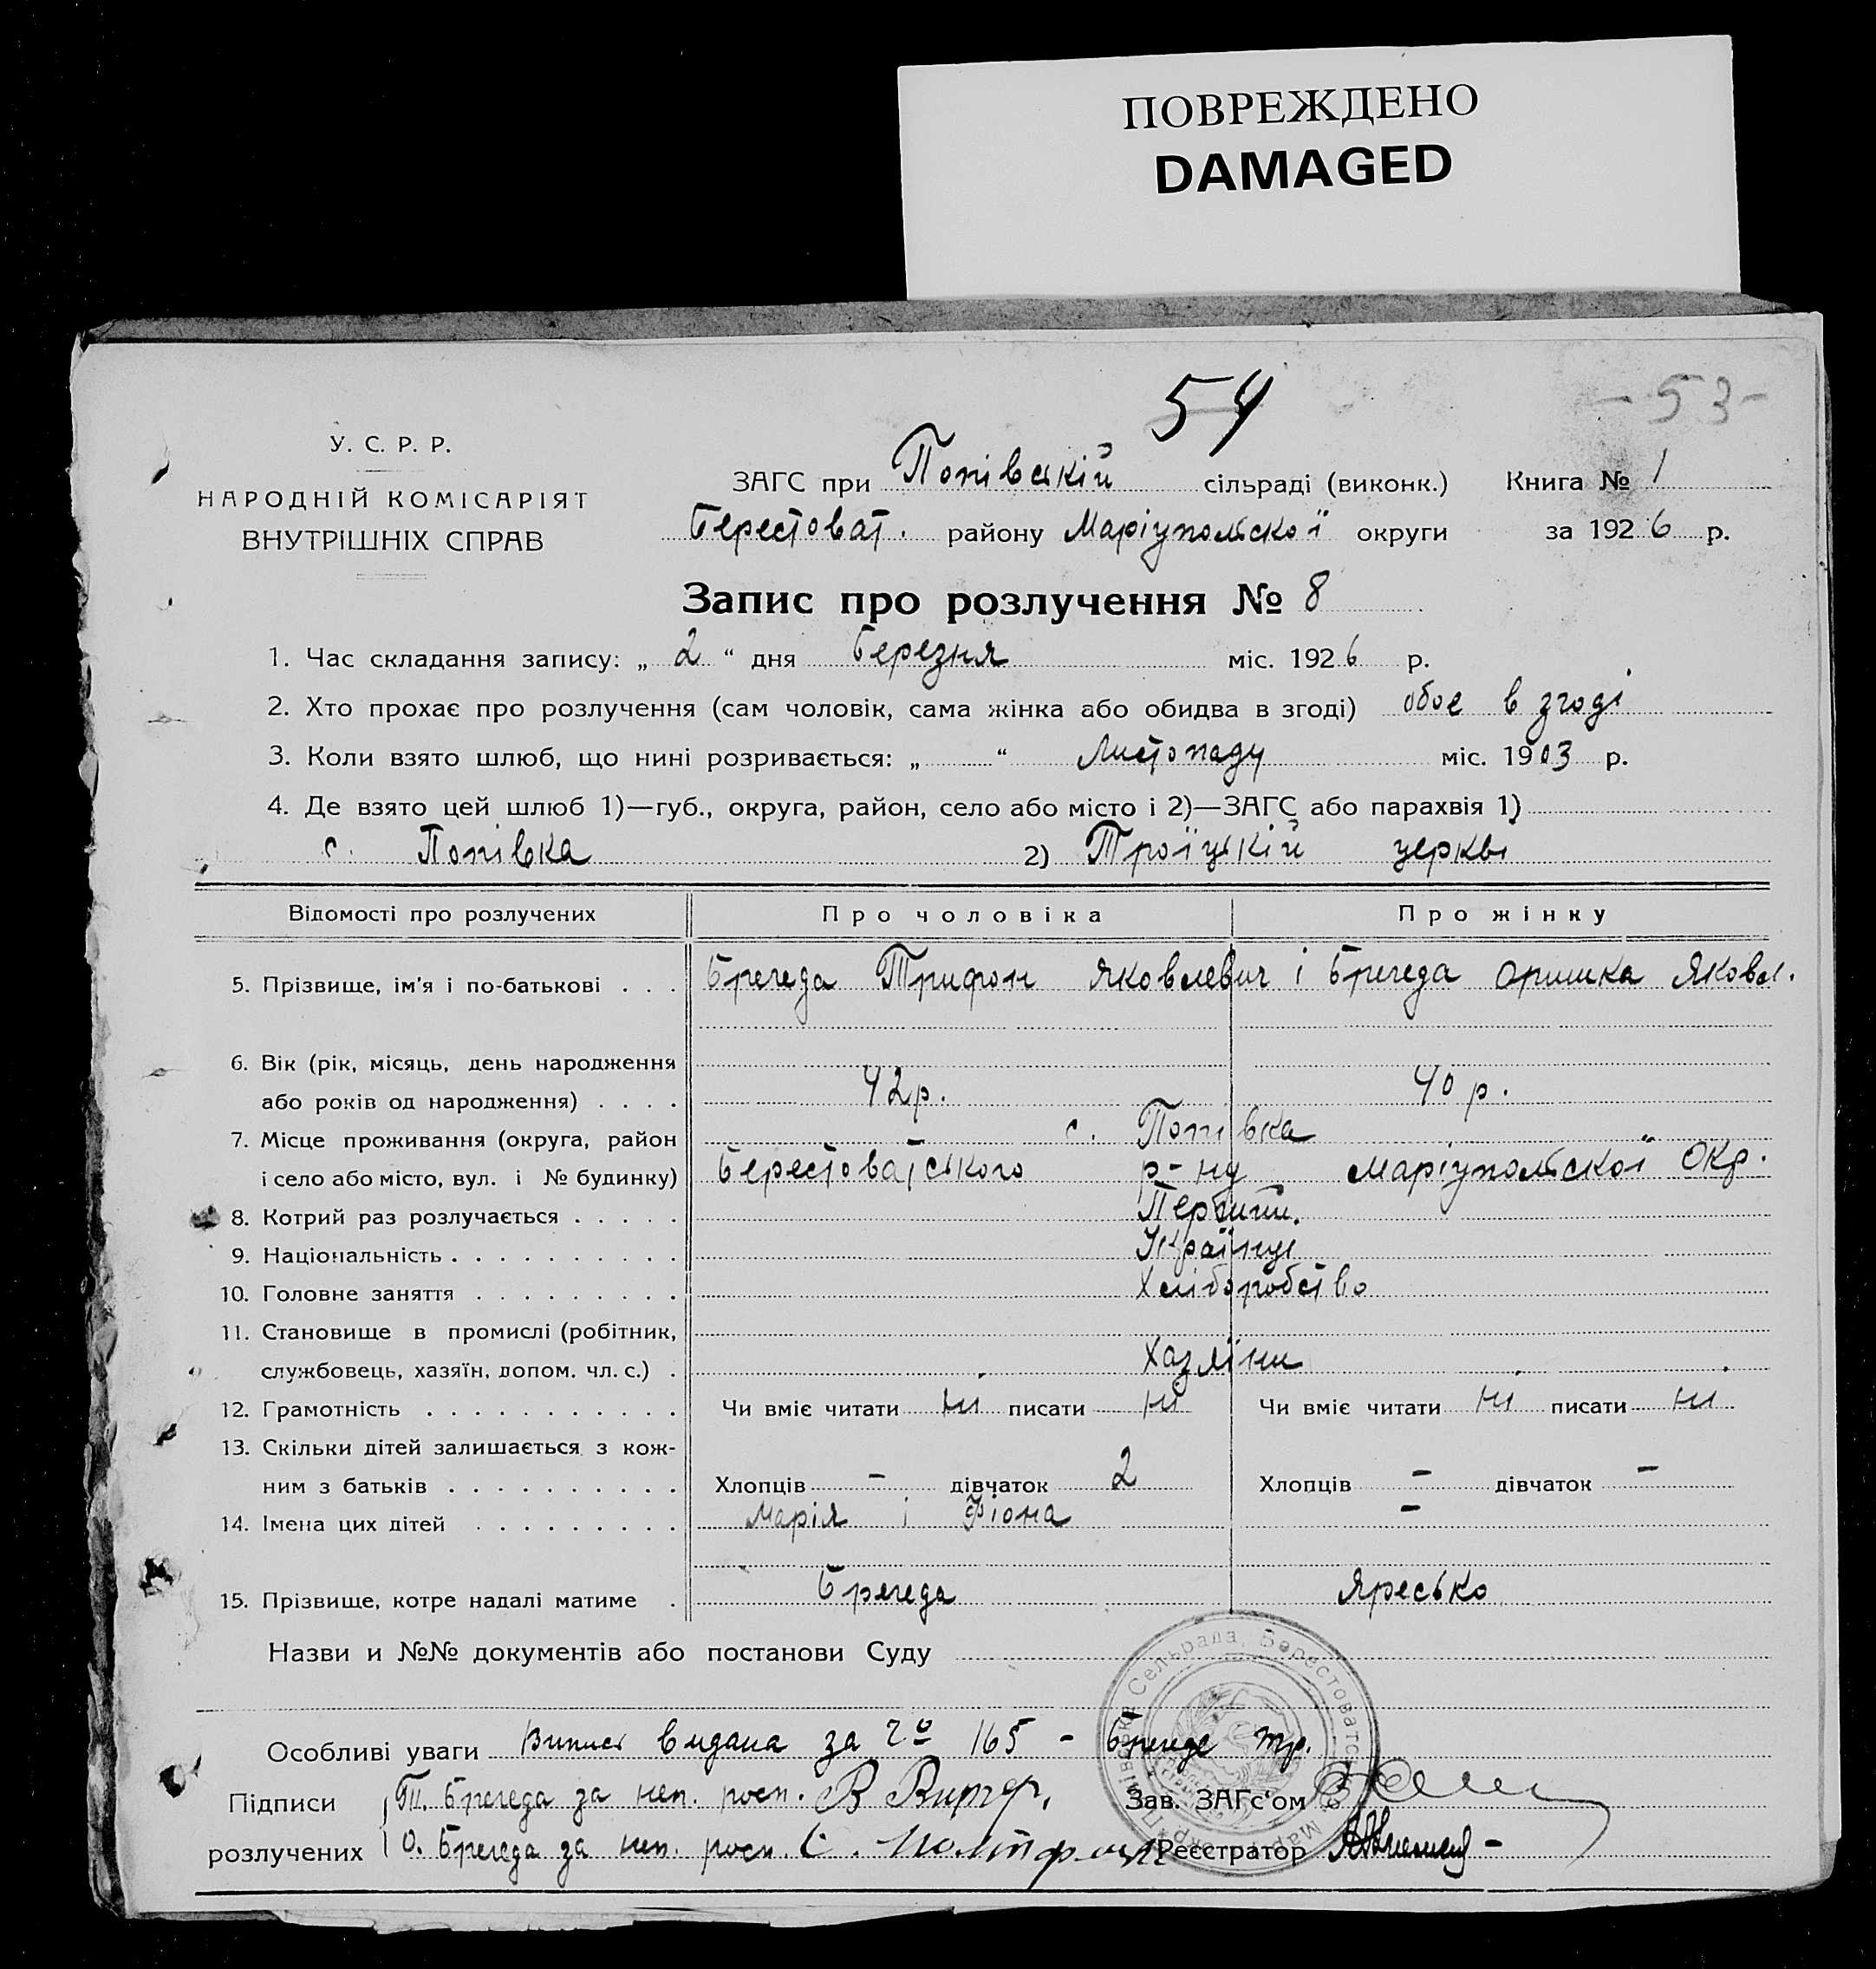 ПОВРЕЖДЕНО
DAMAGED
54
- 53 -
У. С. Р. Р.
НАРОДНІЙ КОМІСАРІЯТ
ВНУТРІШНІХ СПРАВ
ЗАГС при Попівській сільраді (виконк.) Книга № 1
Берестоват. району Маріупольської округи за 1926 р.
Запис про розлучення № 8
1. Час складання запису: „ 2 “ дня березня міс. 1926 р.
2. Хто прохає про розлучення (сам чоловік, сама жінка або обидва в згоді) обоє в згоді
3. Коли взято шлюб, що нині розривається: „ “ Листопаду міс. 1903 р.
4. Де взято цей шлюб 1)—губ., округа, район, село або місто і 2)—ЗАГС або парахвія 1)
с. Попівка 2) Троїцькій церкві
Відомості про розлучених Про чоловіка Про жінку
5. Прізвище, ім'я і по-батькові . . . Брегеда Трифон Яковлевич і Брегеда Оришка Яковл.
6. Вік (рік, місяць, день народження
або років од народження) . . . . 42 р. 40 р.
7. Місце проживання (округа, район с. Попівка
і село або місто, вул. і № будинку) Берестоватського р-ну Маріупольської Окр.
8. Котрий раз розлучається . . . . .
9. Національність . . . . . . . . . . Українці
10. Головне заняття . . . . . . . . . Хліборобство
11. Становище в промислі (робітник,
службовець, хазяїн, допом. чл. с.) . Хазяїни
12. Грамотність . . . . . . . . . . . Чи вміє читати ні писати ні Чи вміє читати ні писати ні
13. Скільки дітей залишається з кож-
ним з батьків . . . . . . . . . . Хлопців - дівчаток 2 Хлопців - дівчаток -
14. Імена цих дітей . . . . . . . . . Марія і Фіона -
15. Прізвище, котре надалі матиме . Брегеда Яресько
Назви и №№ документів або постанови Суду
Особливі уваги видана за 165 - Брегеде Тр.
Підписи Т. Брегеда за неп. росп. В
Зав. ЗАГс'ом
розлучених О. Брегеда за неп. росп. С.
Реєстратор